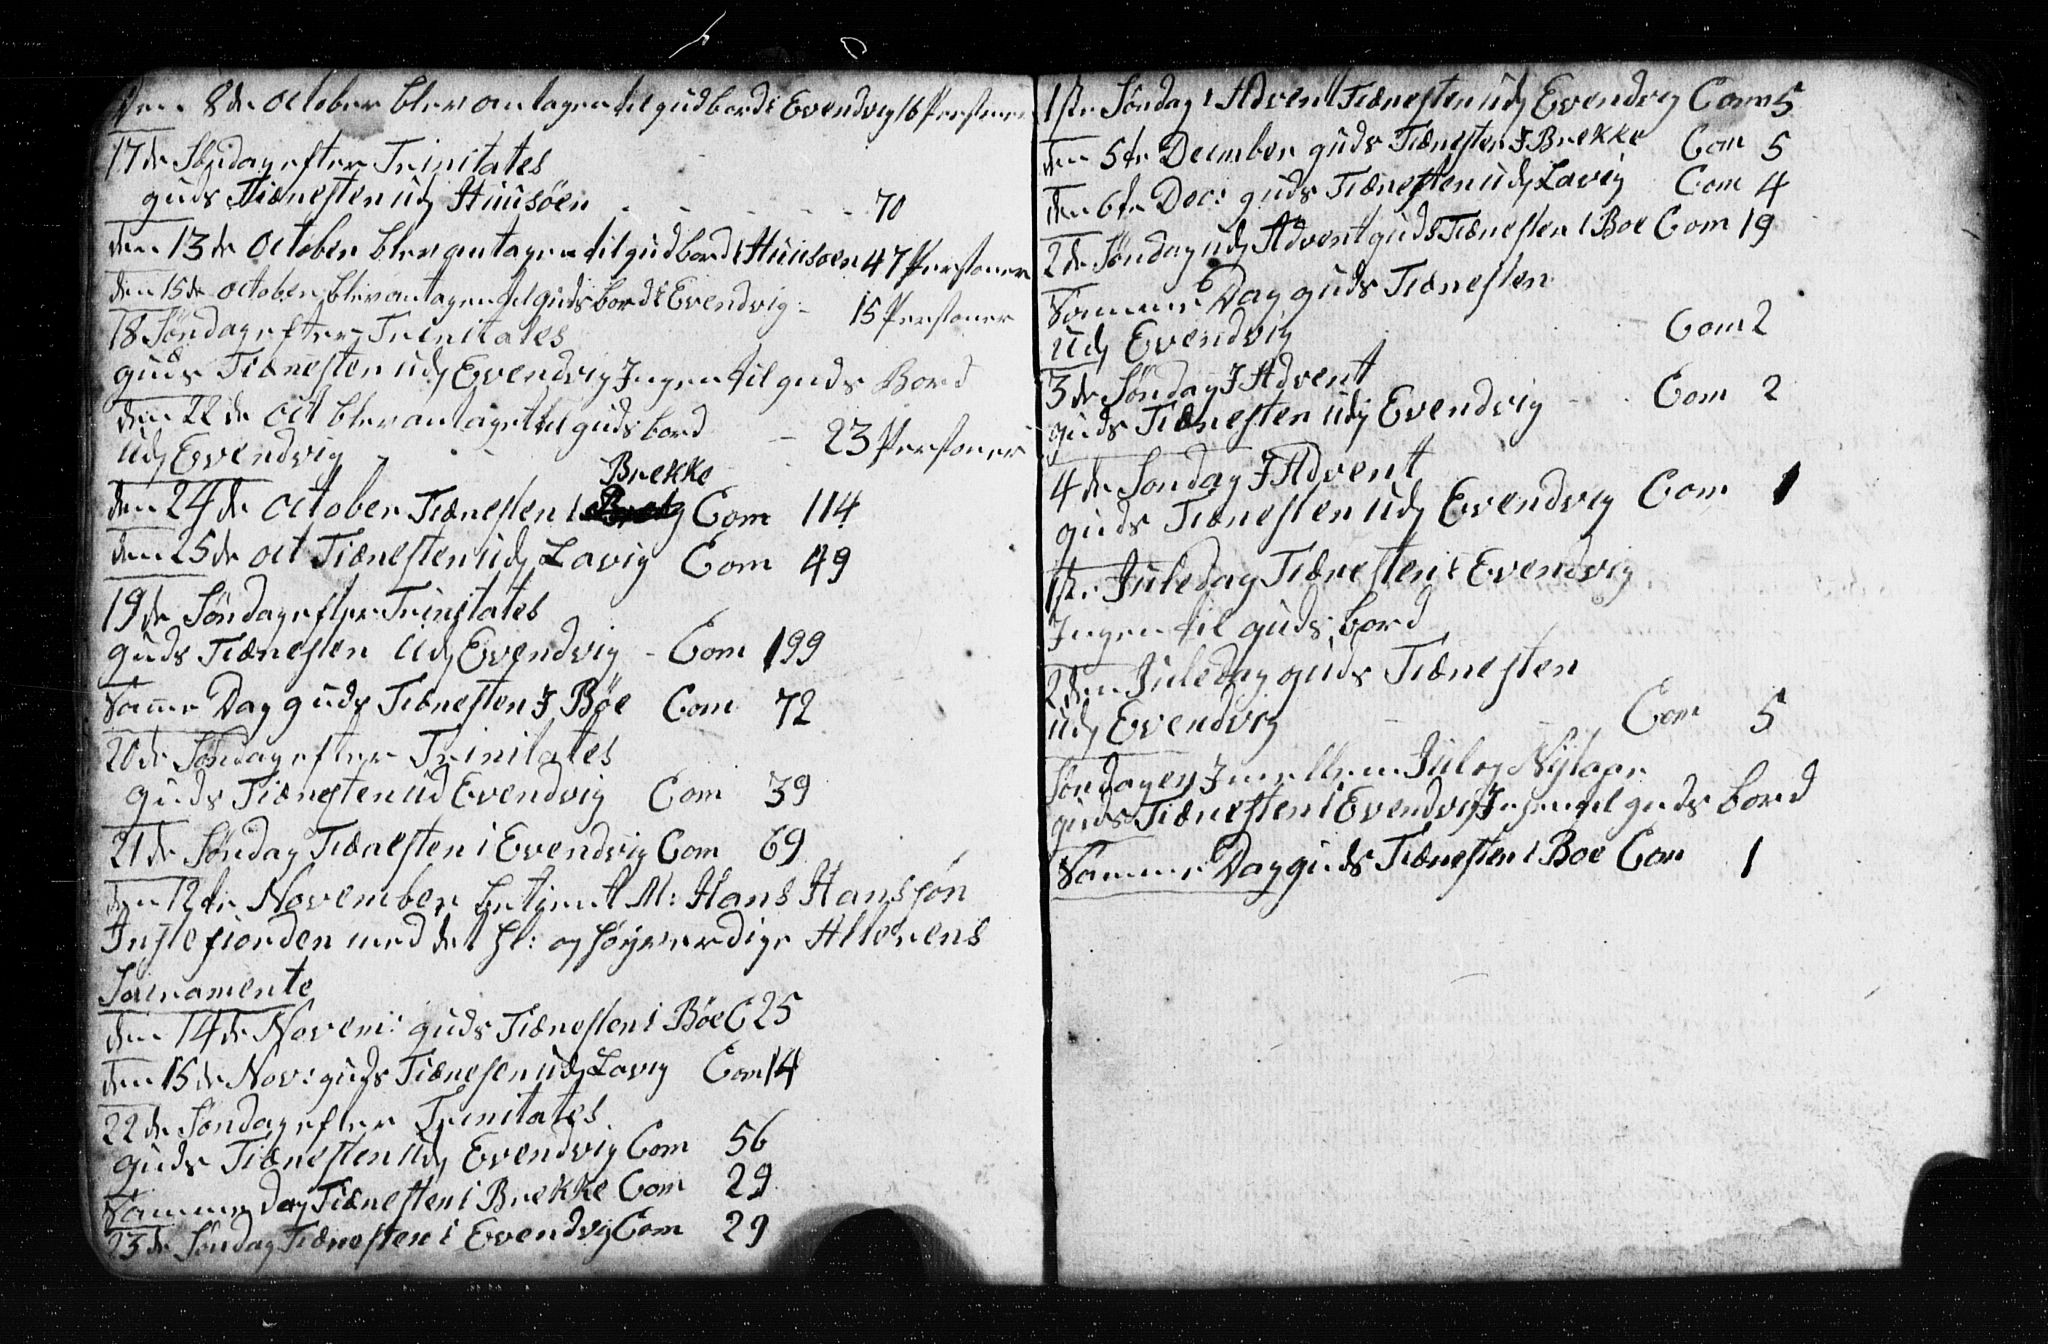 Den 8de october blev antagen til gudbord i Evendvig 16 Personer
17de Søndag efter Trinitates
guds Tiænesten udj Huusöen - - - - - 70
den 13de October blev antagen til gudbord i Huusoen 47 Personer
den 15de october blev antagen til guds bord i Evendvig - 15 Personer
18 Søndag efter Trinitates
guds Tiænesten udj Evendvig Ingen til guds Bord
den 22de oct blev antaget til guds bord
udj Evendvig - - - 23 Personer
Brekke
den 24de october Tiænesten i Com 114
den 25de oct Tiænesten udj Lavig Com 49
19de Søndag efter Trinitates
guds Tiænesten Udj Evendvig - Com 199
Samme Dag guds Tiænesten J Böe Com 72
20de Søndag efter Trinitates
guds Tiænesten ud Evendvig Com 39
21de Søndag Tiænesten i Evendvig Com 69
den 12te November betient M: Hans Hanssøn
Inslefiorden med det hl: og høyværdige Alterens
Sacramente
den 14de Novem: guds Tiænesten i Böe C 25
den 15de Nov: guds Tiænesten udj Lavig Com 14
22de Søndag efter Trinitates
guds Tiænesten Udj Evendvig Com 56
Samme Dag Tiænesten i Brekke Com 29
23de Søndag Tiænesten i Evendvig Com 29
1ste Søndag i Advent Tiænesten udj Evendvig Com 5
den 5te December guds Tiænesten J Brekke Com 5
den 6te Dec: guds Tiænesten udj Lavig Com 4
2de Søndag udj Advent guds Tiænesten i Boe Com 19
Samme Dag guds Tiænesten
udj Evendvig Com 2
3de Søndag J Advent
guds Tiænesten udj Evendvig - - Com 2
4de Sondag J Advent
guds Tiænesten udj Evendvig Com 1
1ste Juledag Tiænesten i Evendvig
Ingen til guds bord
2den Juledag guds Tiænesten
udj Evendvig - - Com 5
Søndagen Imellem Jul og Nytaar
guds Tiænesten i Evendvig Ingen til guds bord
Samme Dag guds Tiænesten i Boe Com 1